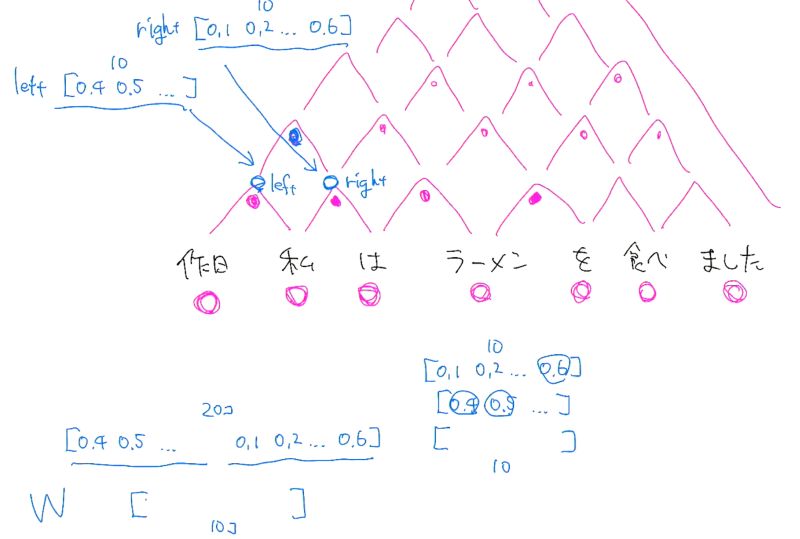 10
right [0,1 0,2 ... 0.6]
10
left [0.4 0.5 ... ]
left right
作日 私 は ラーメン を 食べ ました
10
[0,1 0,2 ... 0.6]
[0.4 0.5 ... ]
[ ]
10
20コ
[0.4 0.5 ... 0,1 0,2 ... 0.6]
W [ ]
10コ